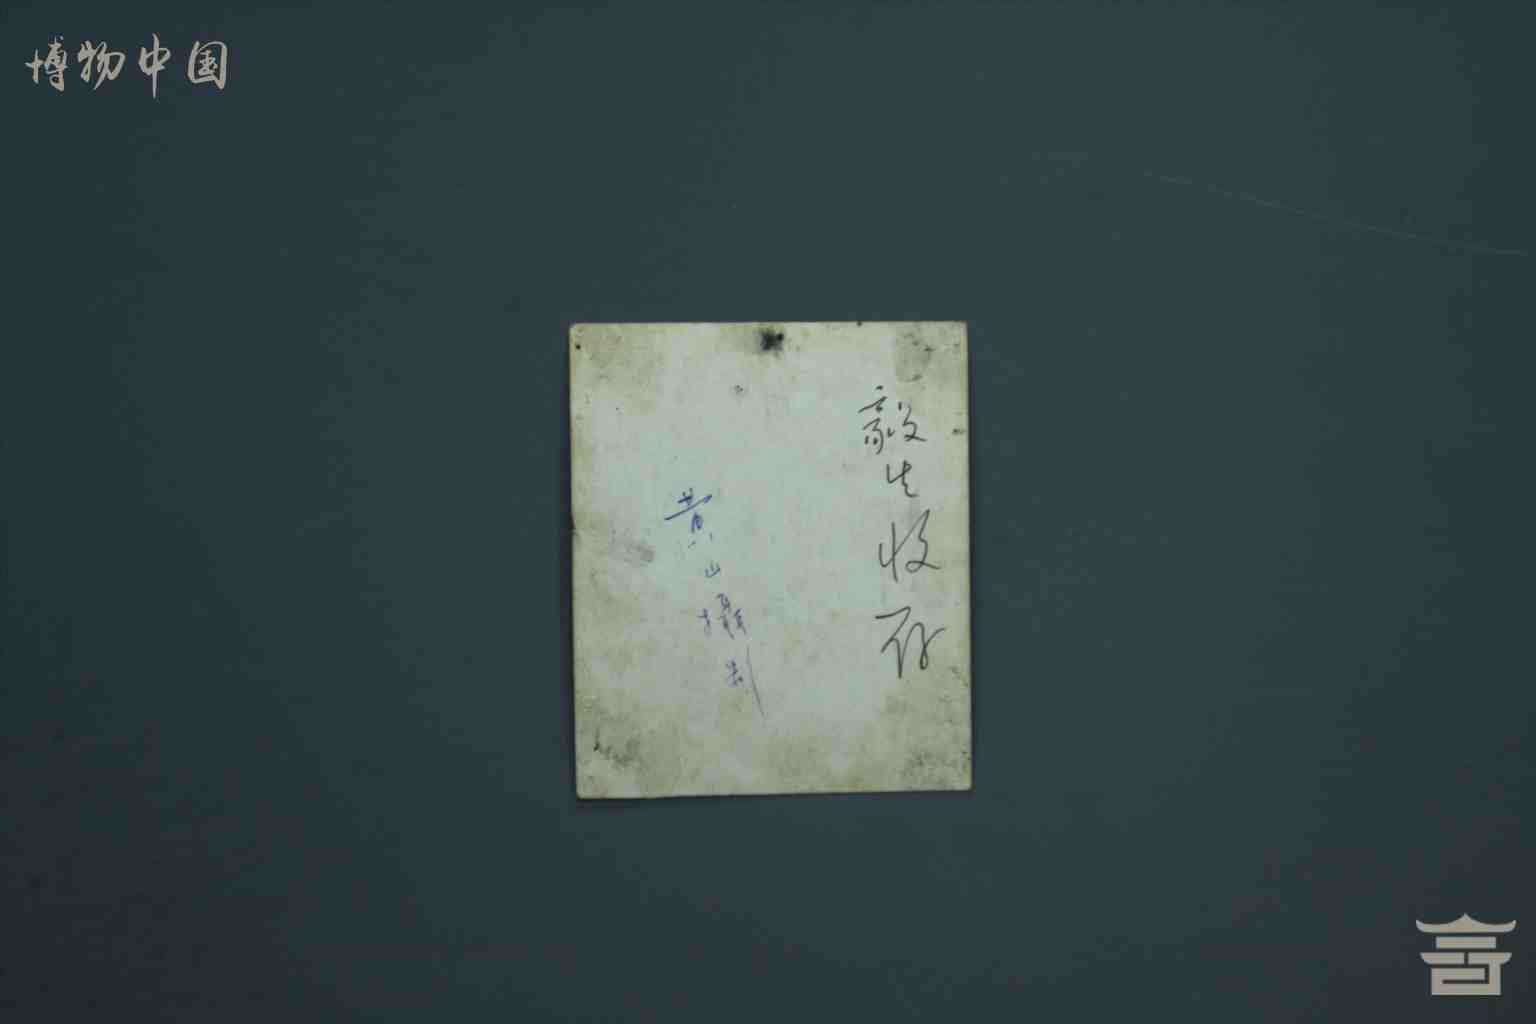 博物中国
毅生收存
黄山攝制